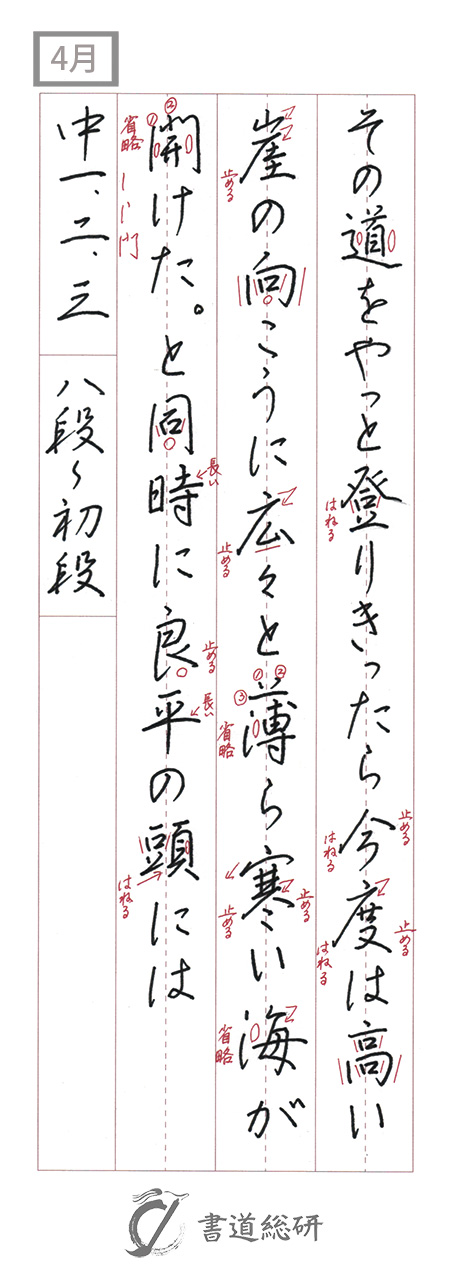 4月
その道をやっと登りきったら今度は高い
崖の向こうに広々と薄ら寒い海が
開けた。と同時に良平の頭には
中一、二、三
八段〜初段
はねる
止める
はねる
止める
はねる
止める
止める
① ② ③
省略
止める
止める
省略
② ①
省略
門
長い
止める
長い
はねる
書道総研